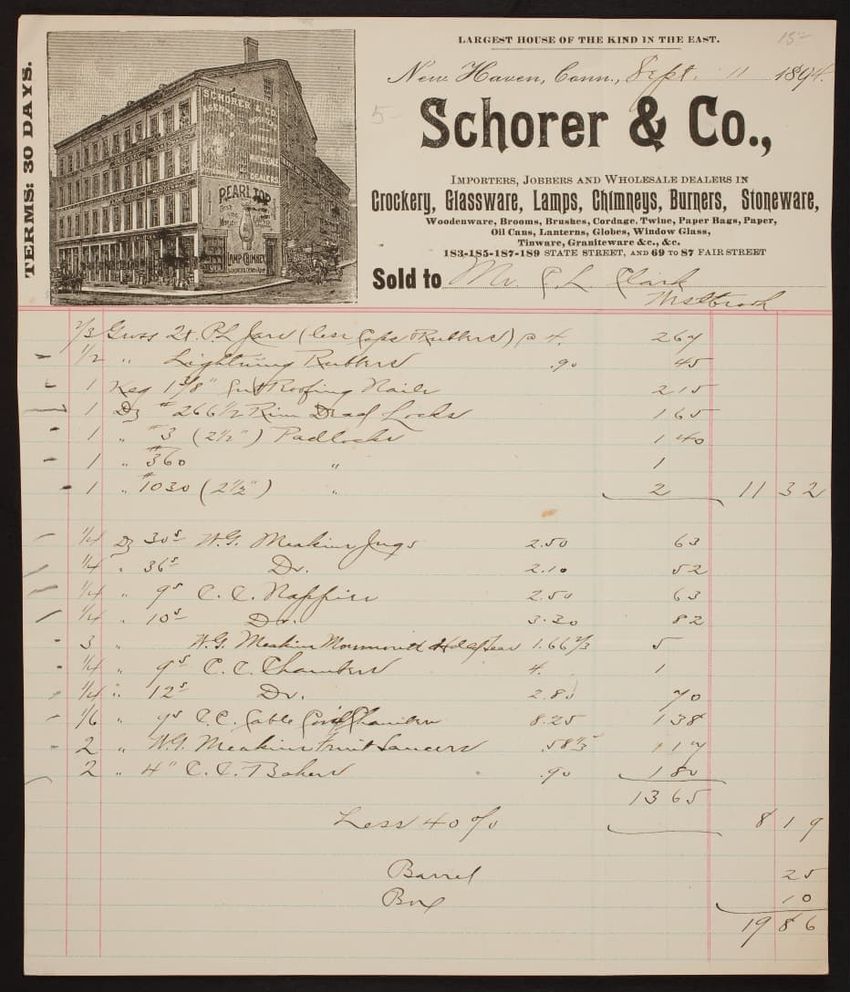 LARGEST HOUSE OF THE KIND IN THE EAST.
15-
New Haven, Conn., Sept. 11 1894.
5-
Schorer & Co.,
TERMS: 30 DAYS.
SCHORER & CO.
WHOLESALE
DEALERS
PEARL TOP
LAMP CHIMNEY
IMPORTERS, JOBBERS AND WHOLESALE DEALERS IN
Crockery, Glassware, Lamps, Chimneys, Burners, Stoneware,
Woodenware, Brooms, Brushes, Cordage, Twine, Paper Bags, Paper,
Oil Cans, Lanterns, Globes, Window Glass,
Tinware, Graniteware &c., &c.
183-185-187-189 STATE STREET, AND 69 TO 87 FAIR STREET
Sold to Mr. C. L. Clark
Westbrook
2/3 Gross 2t. P.L. Jars (less Caps & Rubbers) @ 4. 267
1/2 " Lightning Rubbers .90 45
1 Keg 1 3/8" Roofing Nails 215
1 Dz # 266 1/2 Rim Dead Locks 165
1 " #3 (2 1/2") Padlocks 1 40
1 " #360 " 1
1 " #1030 (2 1/2") " 2 11 32
1/4 Dz 30s W.G. Meakin Jugs 2.50 63
1/4 " 36s Do. 2.10 52
1/4 " 9s C.C. Nappies 2.50 63
1/4 " 10s Do. 3.30 82
3 " W.G. Meakin Teas 1.66 2/3 5
1/4 " 9s C.C. Chambers 4. 1
1/4 " 12s Do. 2.80 70
1/6 " 9s C.C. Cable Cov'd Chambers 8.25 138
2 " W.G. Meakin Fruit Saucers .58 1/3 117
2 " 4" C.C. Bakers .90 180
1365
Less 40% 8 19
Barrel 25
Box 10
19 86